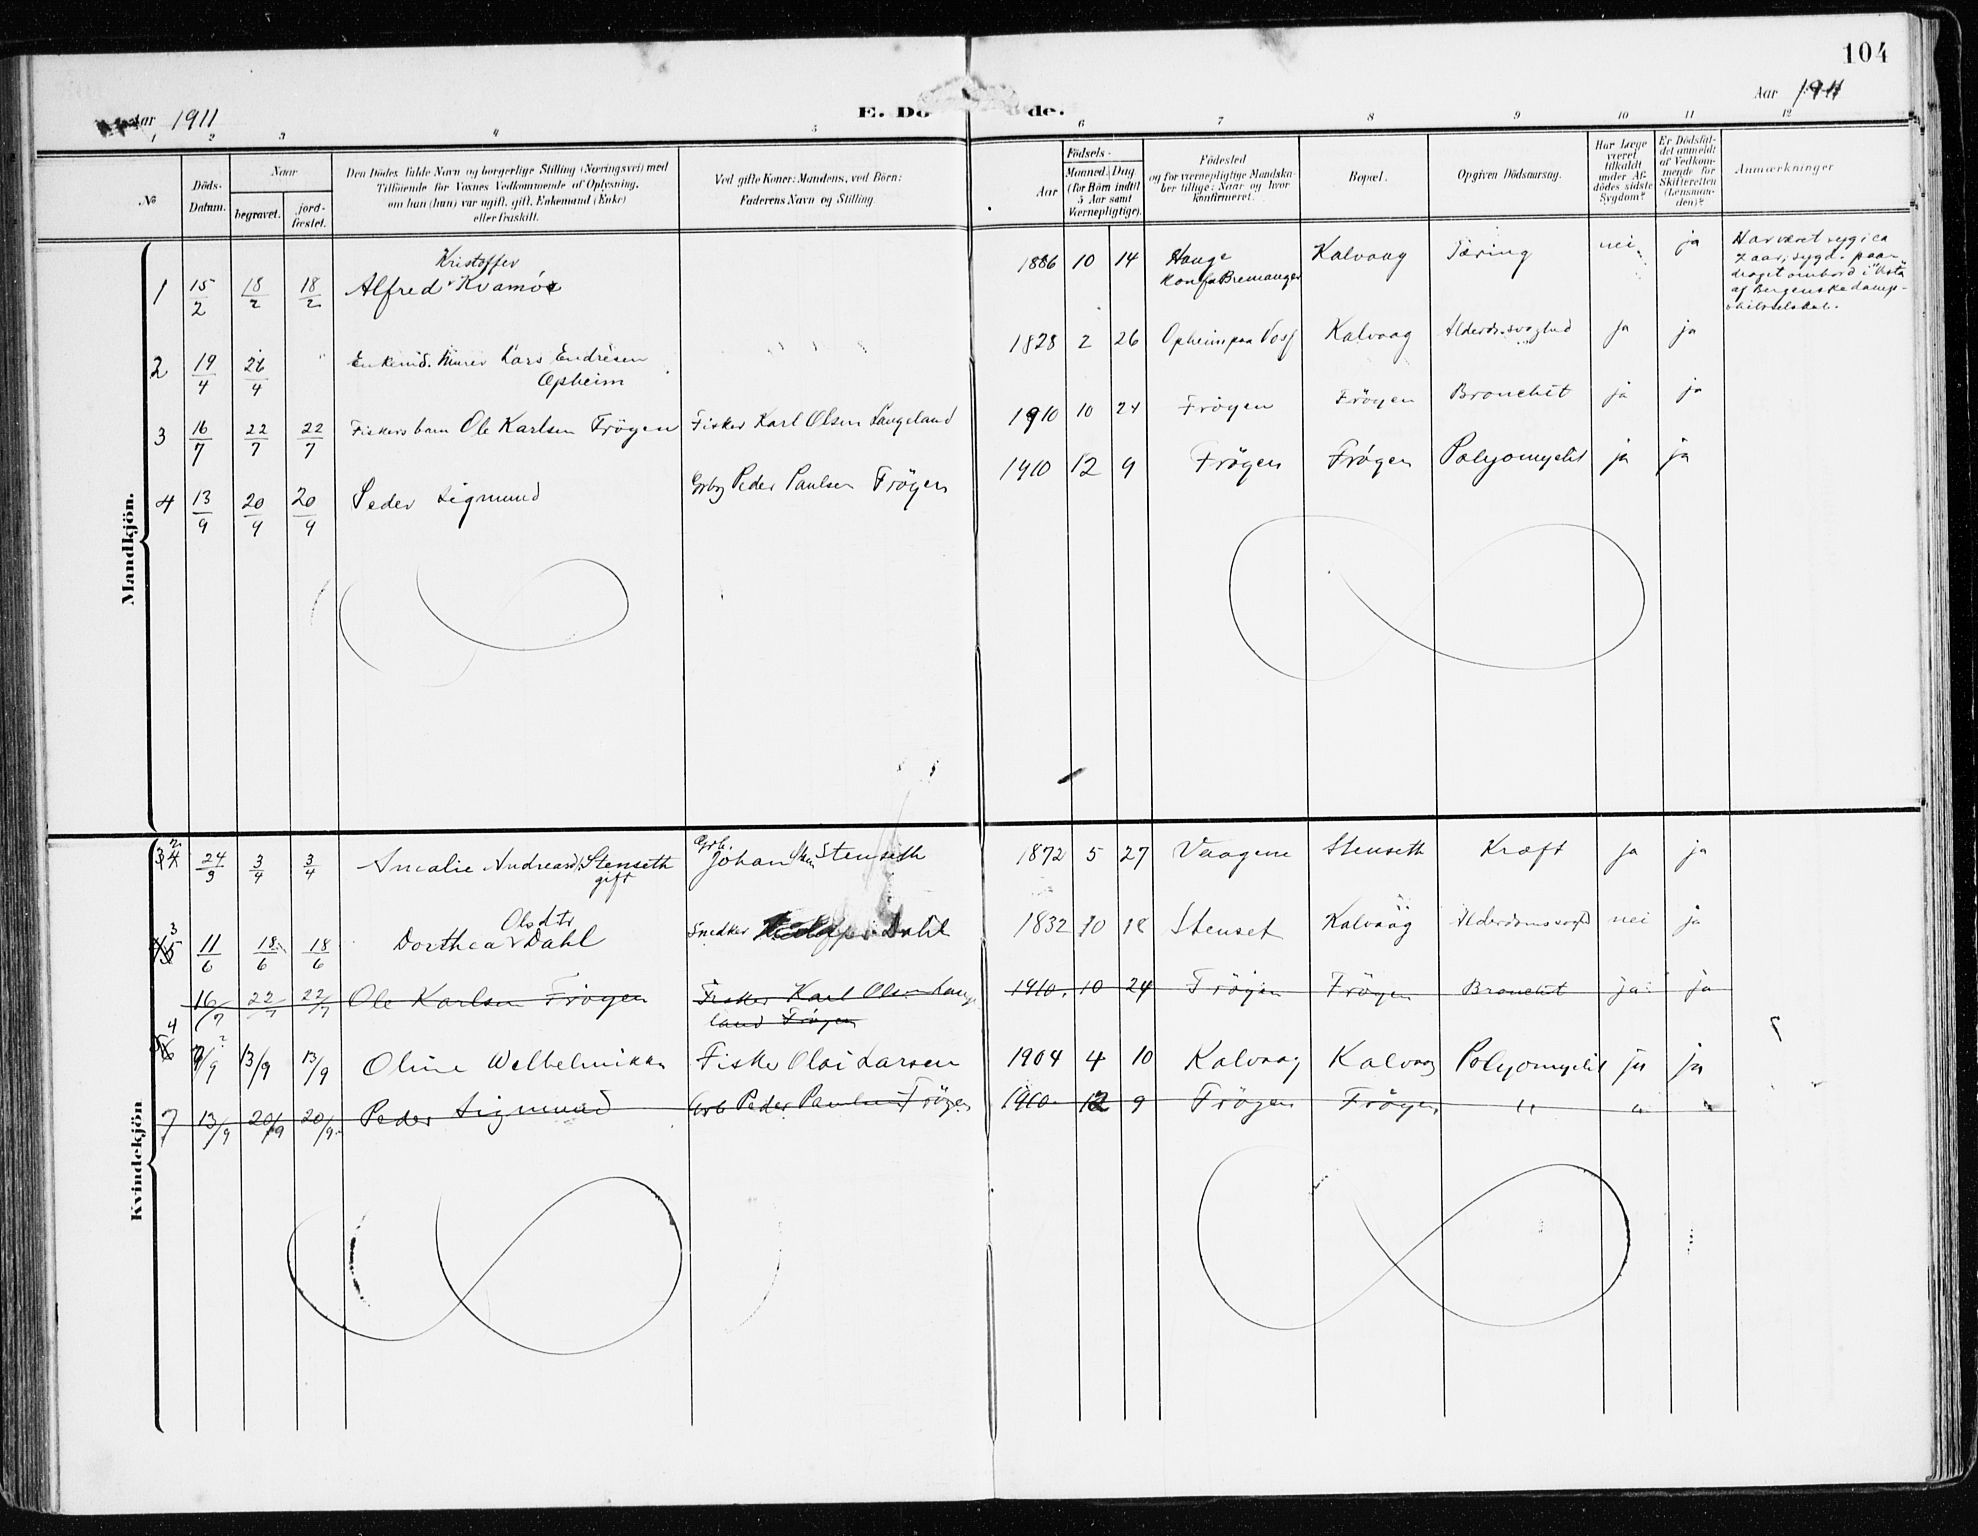 104
Aar 1911
E. Do de.
Aar 1911
1 2 3 4 5 6 7 8 9 10 11 12
No
Döds-Datum.
Naar
begravet.
jord-fæstet.
Den Dödes fulde Navn og borgerlige Stilling (Næringsvei) med
Tilföiende for Voxnes Vedkommende af Oplysning,
om han (hun) var ugift, gift, Enkemand (Enke)
eller fraskilt.
Ved gifte Koner: Mandens, ved Börn:
Faderens Navn og Stilling.
Födsels-
Aar
Maaned. Dag
(for Börn indtil
5 Aar samt
Værnepligtige).
Födested
og for værnepligtige Mandska-
ber tillige: Naar og hvor
konfirmeret.
Bopæl.
Opgiven Dödsaarsag.
Har Læge
været
tilkaldt
under Af-
dödes sidste
Sygdom?
Er Dödsfal-
det anmeldt
af Vedkom-
mende for
Skifteretten
(Lensman-
den)?
Anmærkninger
Mandkjön.
1 15/2 18/2 18/2 Alfred Kristoffer Kvamöe 1886 10 14 Hauge Konf. Bremanger Kalvaag Tæring nei ja
Har været syg i ca
2 aar; sygd. paa-
draget ombord i "Vesta"
af Bergenske damp-
skibsselskab.
2 19/4 26/4 Enkemd. Murer Lars Endresen Opheim 1828 2 26 Opheim paa Voss Kalvaag Alderdomssvaghed ja ja
3 16/7 22/7 22/7 Fiskers barn Ole Karlsen Frögen Fisker Karl Olsen Langeland 1910 10 24 Frögen Frögen Bronchit ja ja
4 13/9 20/9 20/9 Peder Sigmund Grbr Peder Paulsen Frögen 1910 12 9 Frögen Frögen Polyomyelit ja ja
Kvindekjön
2 24/3 3/4 3/4 Amalie Andreasd. Stenseth gift Grb. Johan Stenseth 1872 5 27 Vaagene Stenseth Kræft ja ja
3 11/6 18/6 18/6 Dorthea Olsdtr Dahl Snedker Dahl 1832 10 18 Stenset Kalvaag Alderdomssvagh nei ja
16/7 22/7 22/7 Ole Karlsen Frögen Fisker Karl Olsen Lange
land Frögen 1910 10 24 Frögen Frögen Bronchit ja ja
4 9/9 13/9 13/9 Oline Welhelmikke Fisker Olai Larsen 1904 4 10 Kalvaag Kalvaag Polyomyelit ja ja
7 13/9 20/9 20/9 Peder Sigmund Grb Peder Paulsen Frögen 1910 12 9 Frögen Frögen " " "